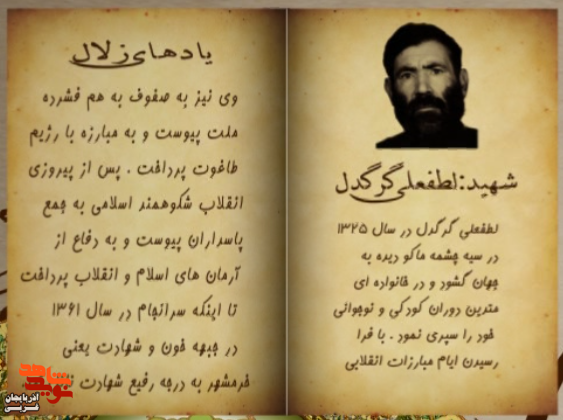 شهید: لطفعلی گرگدل
لطفعلی گرگدل در سال ۱۳۲۵
در سیه چشمه ماکو دیده به
جهان گشود و در خانواده ای
متدین دوران کودکی و نوجوانی
خود را سپری نمود . با فرا
رسیدن ایام مبارزات انقلابی
یادهای زلال
وی نیز به صفوف به هم فشرده
ملت پیوست و به مبارزه با رژیم
طاغوت پرداخت . پس از پیروزی
انقلاب شکوهمند اسلامی به جمع
پاسداران پیوست و به دفاع از
آرمان های اسلام و انقلاب پرداخت
تا اینکه سرانجام در سال ۱۳۶۱
در جبهه خون و شهادت یعنی
خرمشهر به درجه رفیع شهادت
نوید شاهد
آذربایجان
غربی